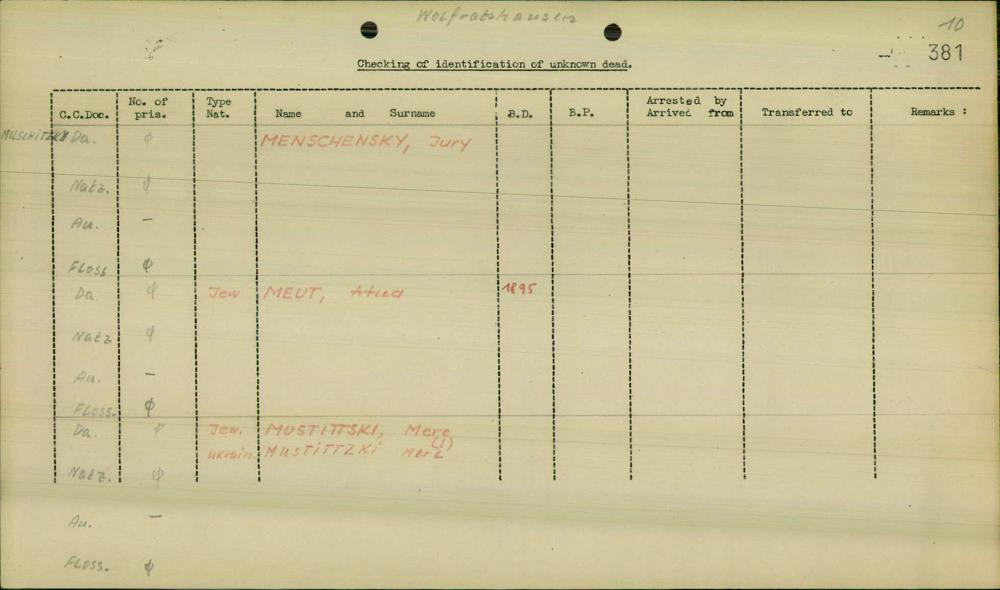 Wolfratshausen
10
381
Checking of identification of unknown dead.
C.C.Doc. No. of pris. Type Nat. Name and Surname B.D. B.P. Arrested by Arrived from Transferred to Remarks :
MILSCHITZKY Da. ϕ MENSCHENSKY, Jury
Natz. ϕ
Au. -
Floss ϕ
Da. ϕ Jew MEUT, Atud 1895
Natz ϕ
Au. -
Floss. ϕ
Da. ϕ Jew. MUSTITTSKI, Mere
ukrain. MUSTITTZKI Merz (!)
Natz. ϕ
Au. -
Floss. ϕ